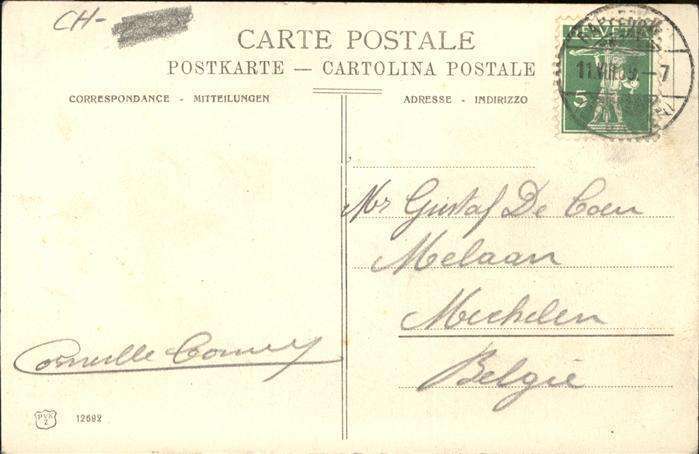 CH-
CARTE POSTALE
POSTKARTE — CARTOLINA POSTALE
CORRESPONDANCE - MITTEILUNGEN
ADRESSE - INDIRIZZO
5
11.VIII.09.-7
Mr Gustaf De Coen
Melaan
Mechelen
Belgie
Corneille
12682